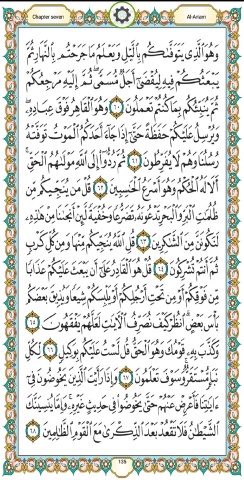 Chapter seven
Al-Anam
وَهُوَ ٱلَّذِى يَتَوَفَّىٰكُم بِٱلَّيْلِ وَيَعْلَمُ مَا جَرَحْتُم بِٱلنَّهَارِ ثُمَّ
يَبْعَثُكُمْ فِيهِ لِيُقْضَىٰٓ أَجَلٌ مُّسَمًّى ثُمَّ إِلَيْهِ مَرْجِعُكُمْ
ثُمَّ يُنَبِّئُكُم بِمَا كُنتُمْ تَعْمَلُونَ ٦٠ وَهُوَ ٱلْقَاهِرُ فَوْقَ عِبَادِهِۦ
وَيُرْسِلُ عَلَيْكُمْ حَفَظَةً حَتَّىٰٓ إِذَا جَآءَ أَحَدَكُمُ ٱلْمَوْتُ تَوَفَّتْهُ
رُسُلُنَا وَهُمْ لَا يُفَرِّطُونَ ٦١ ثُمَّ رُدُّوٓا۟ إِلَى ٱللَّهِ مَوْلَىٰهُمُ ٱلْحَقِّ
أَلَا لَهُ ٱلْحُكْمُ وَهُوَ أَسْرَعُ ٱلْحَٰسِبِينَ ٦٢ قُلْ مَن يُنَجِّيكُم مِّن
ظُلُمَٰتِ ٱلْبَرِّ وَٱلْبَحْرِ تَدْعُونَهُۥ تَضَرُّعًا وَخُفْيَةً لَّئِنْ أَنجَىٰنَا مِنْ هَٰذِهِۦ
لَنَكُونَنَّ مِنَ ٱلشَّٰكِرِينَ ٦٣ قُلِ ٱللَّهُ يُنَجِّيكُم مِّنْهَا وَمِن كُلِّ كَرْبٍ
ثُمَّ أَنتُمْ تُشْرِكُونَ ٦٤ قُلْ هُوَ ٱلْقَادِرُ عَلَىٰٓ أَن يَبْعَثَ عَلَيْكُمْ عَذَابًا
مِّن فَوْقِكُمْ أَوْ مِن تَحْتِ أَرْجُلِكُمْ أَوْ يَلْبِسَكُمْ شِيَعًا وَيُذِيقَ بَعْضَكُم
بَأْسَ بَعْضٍ ٱنظُرْ كَيْفَ نُصَرِّفُ ٱلْءَايَٰتِ لَعَلَّهُمْ يَفْقَهُونَ ٦٥
وَكَذَّبَ بِهِۦ قَوْمُكَ وَهُوَ ٱلْحَقُّ قُل لَّسْتُ عَلَيْكُم بِوَكِيلٍ ٦٦ لِّكُلِّ
نَبَإٍ مُّسْتَقَرٌّ وَسَوْفَ تَعْلَمُونَ ٦٧ وَإِذَا رَأَيْتَ ٱلَّذِينَ يَخُوضُونَ فِىٓ
ءَايَٰتِنَا فَأَعْرِضْ عَنْهُمْ حَتَّىٰ يَخُوضُوا۟ فِى حَدِيثٍ غَيْرِهِۦ وَإِمَّا يُنسِيَنَّكَ
ٱلشَّيْطَٰنُ فَلَا تَقْعُدْ بَعْدَ ٱلذِّكْرَىٰ مَعَ ٱلْقَوْمِ ٱلظَّٰلِمِينَ ٦٨
135